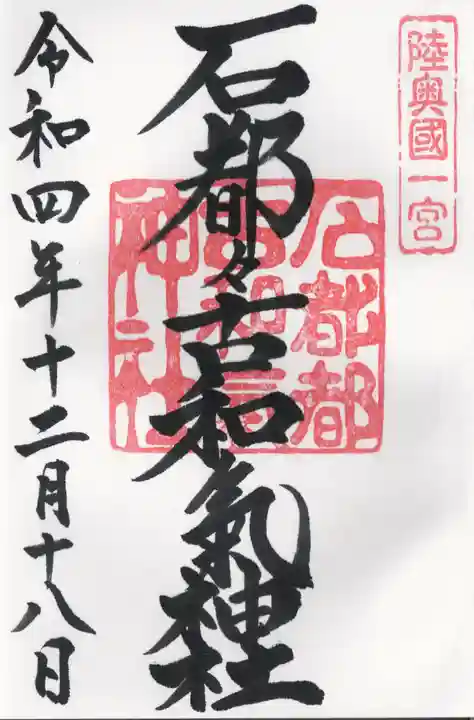 陸奥國一宮
石都々古和氣神社
石都都
古和氣
神社
令和四年十二月十八日